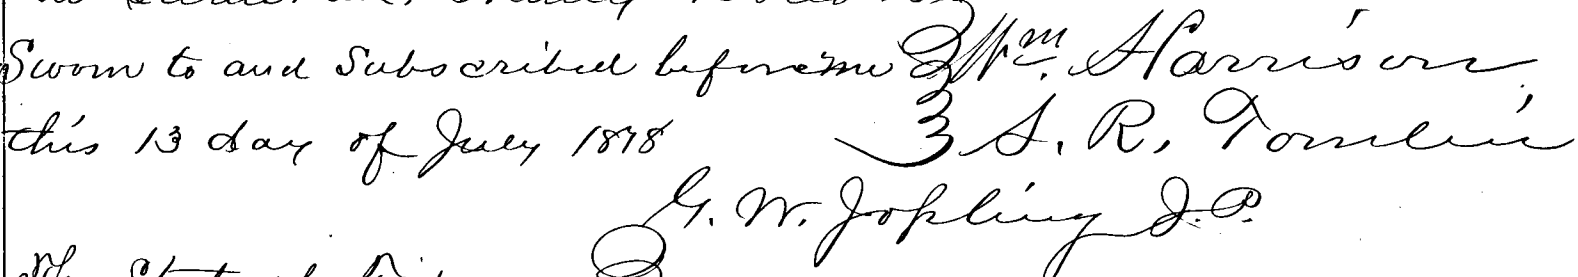 Sworn to and Subscribed before me Wm. Harrison
this 13 day of July 1878 S. R. Tomlin
G. W. Jopling J.P.